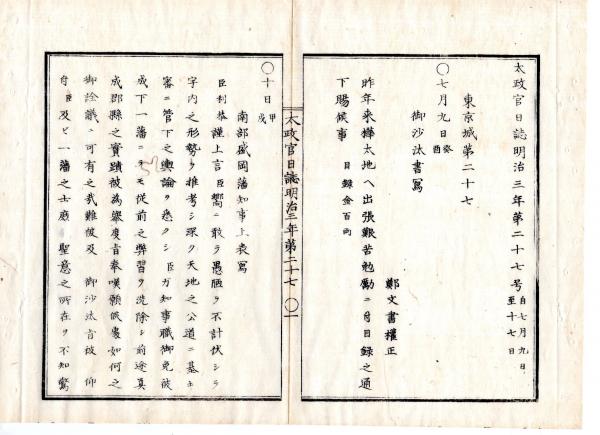 太政官日誌明治三年第二十七号 自七月九日 至十七日
東京城第二十七
〇七月九日 癸酉
御沙汰書写
鄭文書権正
昨年来樺太地ヘ出張艱苦勉勵ニ付目録之通
下賜候事
目録金百両
太政官日誌明治三年第二十七 〇一
〇十日 甲戌
南部盛岡藩知事上表写
臣利恭謹上言臣嚮ニ敢テ愚陋ヲ不計伏シテ
宇内之形勢ヲ推考シ深ク天地之公道ニ基キ
審ニ管下之輿論ヲ悉クシ臣カ知事職御免被
成下一藩ヲシテ従前之弊習ヲ洗除シ前途真
成郡縣之實蹟被為擧度旨奉嘆願候處如何之
御詮議ニ可有之哉難被及 御沙汰旨被 仰
付臣及ヒ一藩之士庶 聖意之所在ヲ不知驚